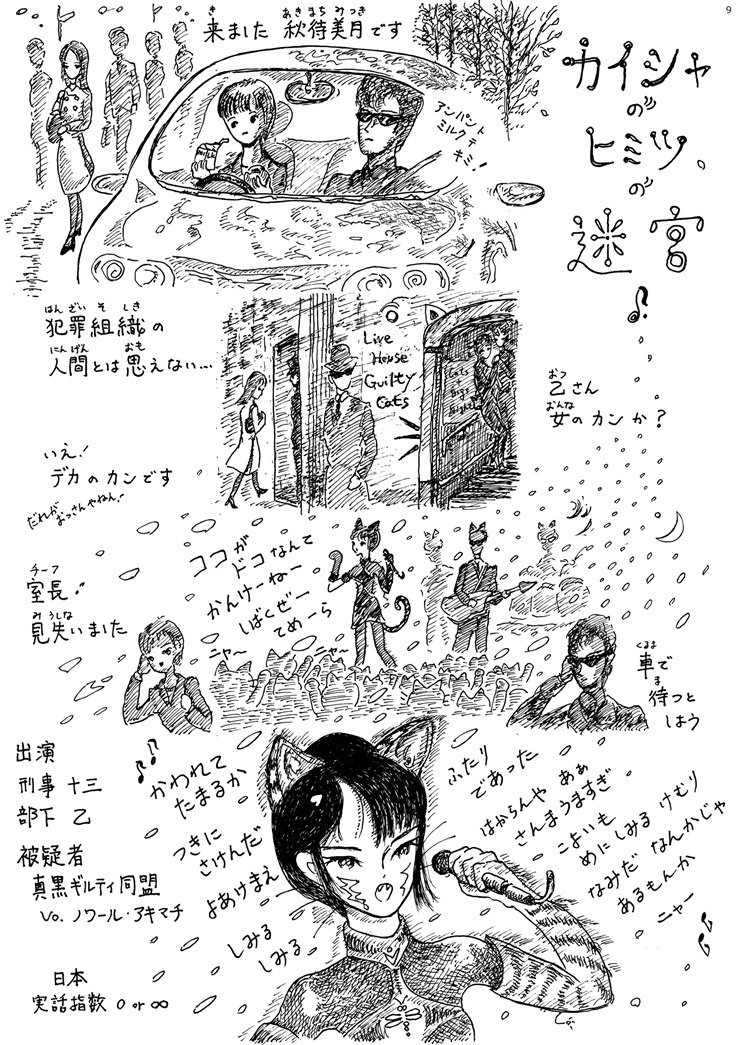 9
カイシャ
の
ヒミツ
の
迷宮
来ました 秋待美月です
き
あきまち みつき
アンパント
ミルクデ
キミ!
犯罪組織の
はんざいそしき
人間とは思えない…
にんげん
おも
Live
House
Guilty
Cats
乙さん
おつ
女のカンか?
おんな
いえ!
デカのカンです
だれが
おっさんやねん!
室長!
チーフ
見失いました
みうしな
ココが
ドコなんて
かんけーねー
しばくぜー
てめーら
ニャ〜
ニャ〜
車で
くるま
待つと
ま
しよう
出演
刑事 十三
部下 乙
被疑者
真黒ギルティ同盟
Vo. ノワール・アキマチ
日本
実話指数 0 or ∞
かわれて
たまるか
つきに
さけんだ
よあけまえ
しみる
しみる
ふたり
であった
はからんや あぁ
さんまうますぎ
こよいも
めにしみる けむり
なみだ なんかじゃ
あるもんか
ニャー